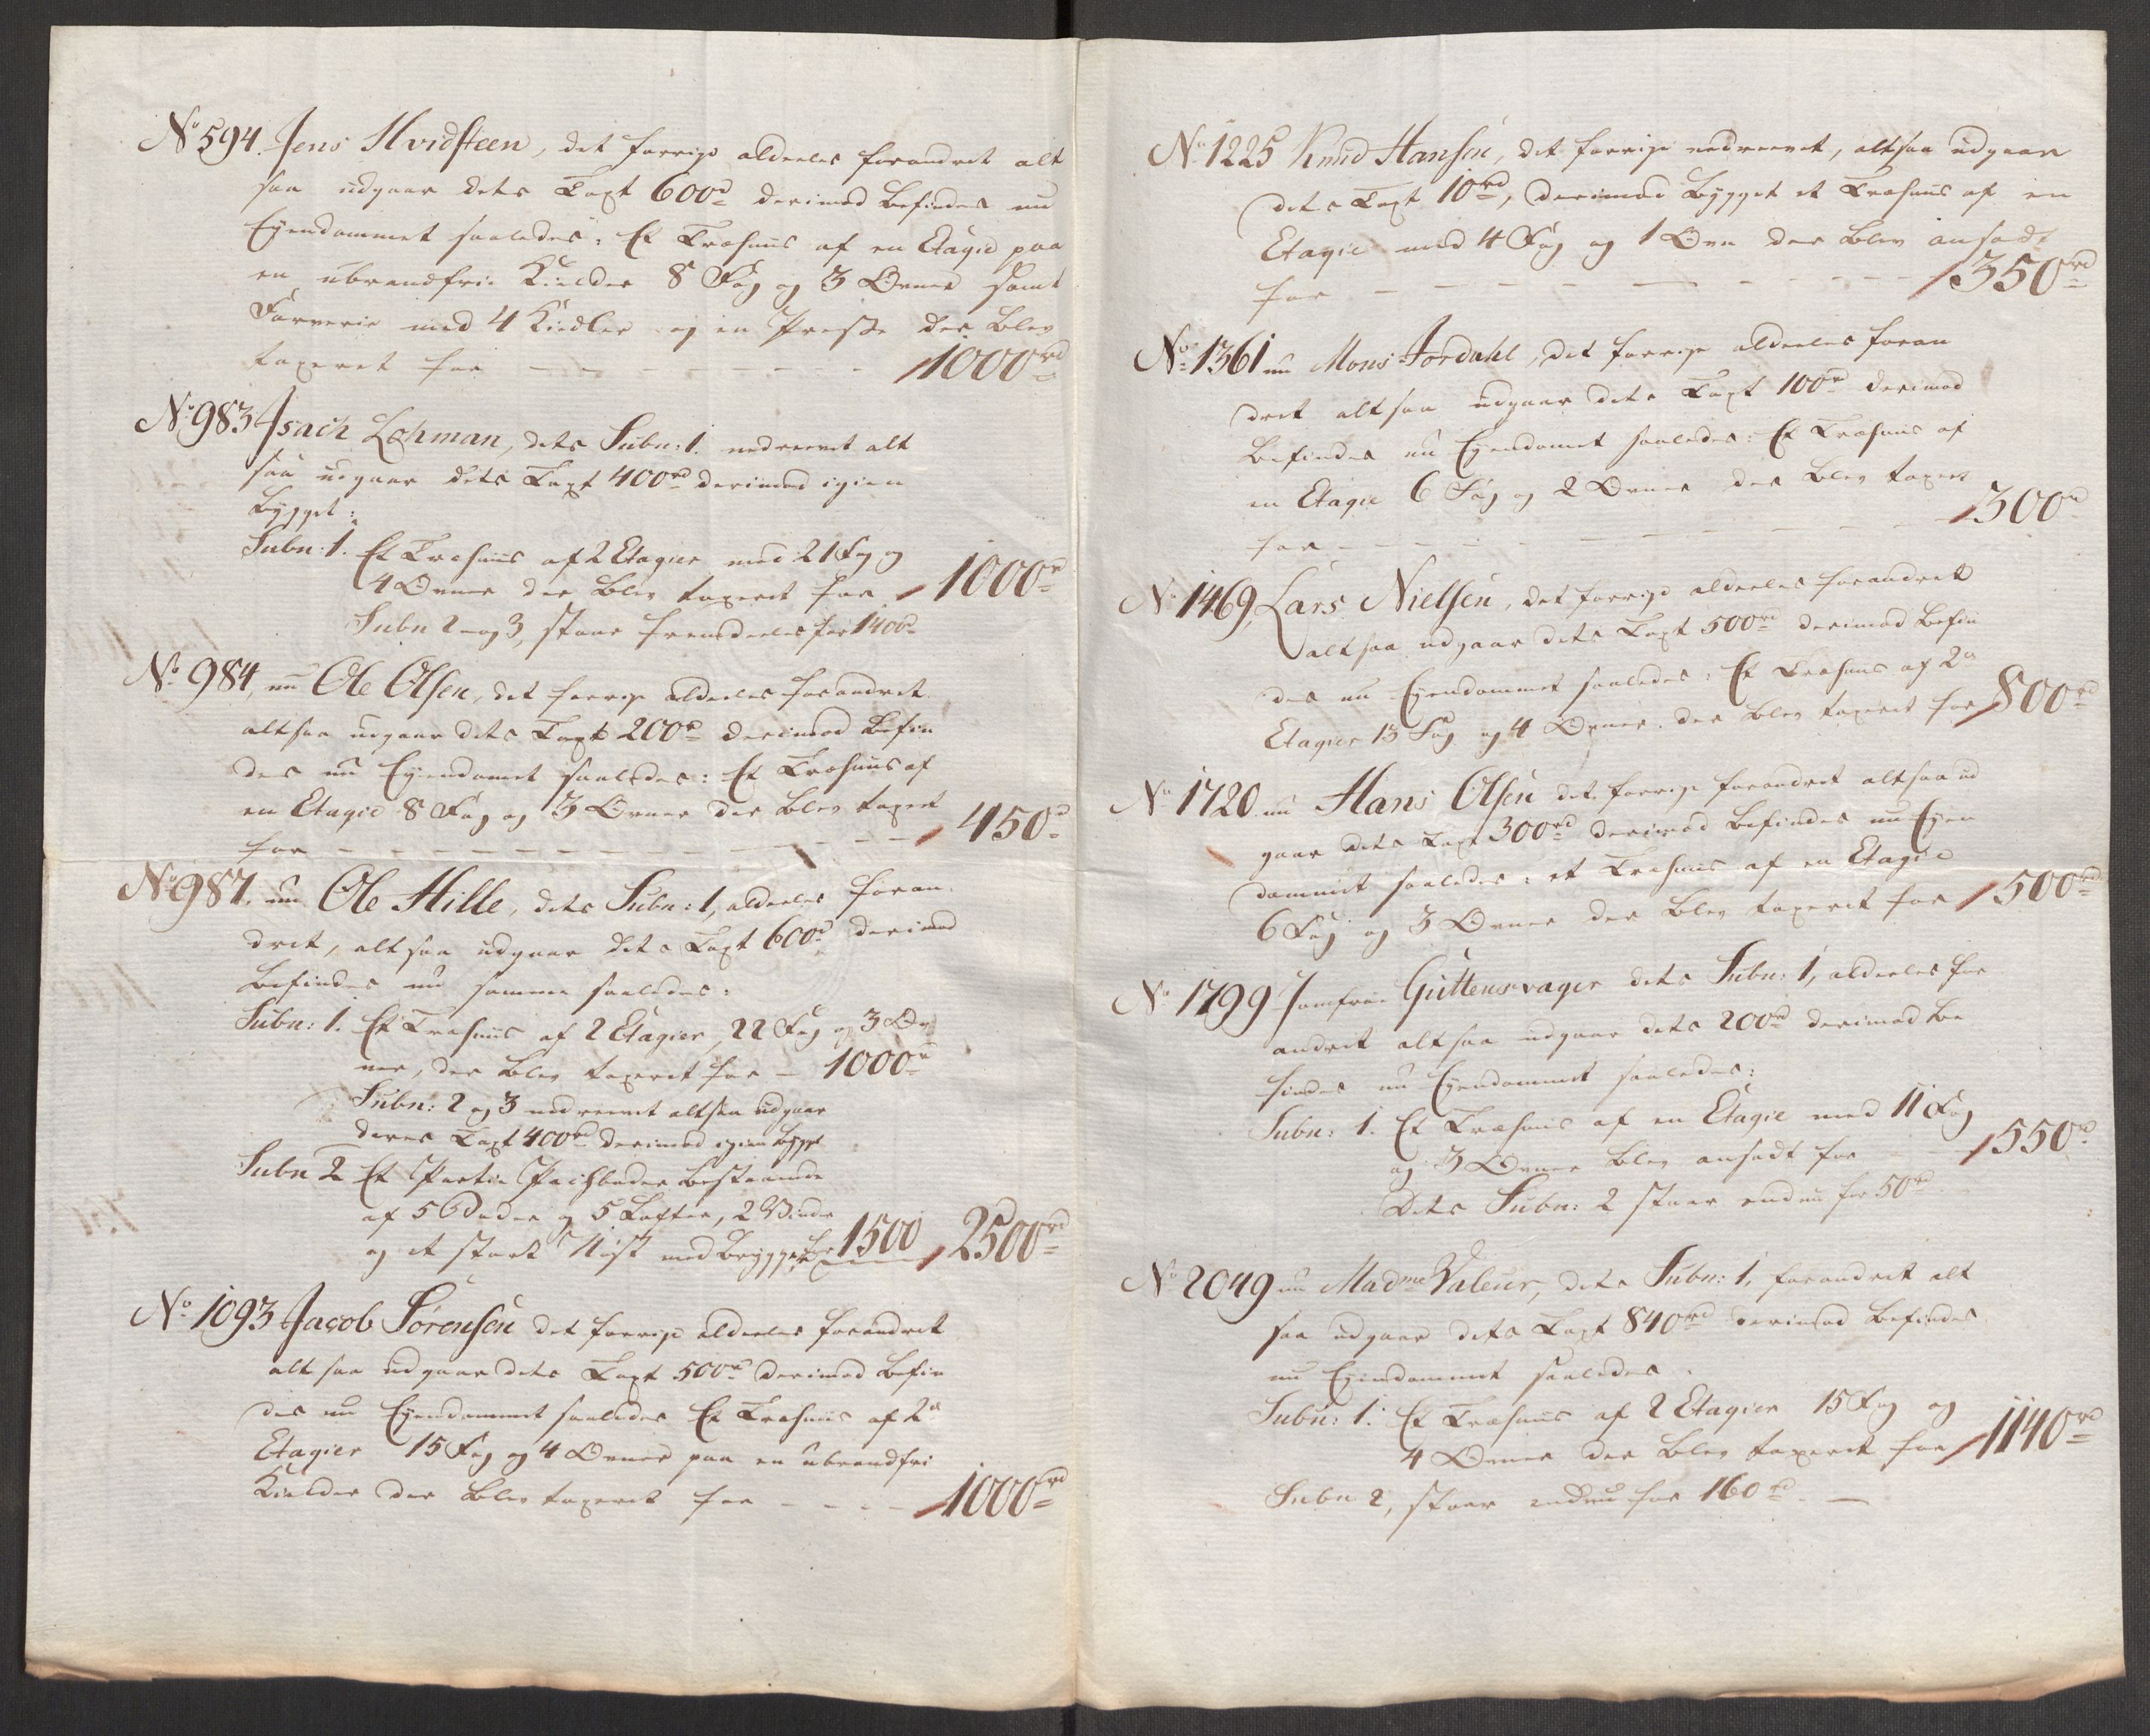 No 594. Jens Hvidsteen, det forrige aldeeles forandret alt
saa udgaar dets Taxt 600rd derimod befindes nu
Eyendommet saaledes: Et Træhuus af en Etagie paa
en ubrandfrie Kielder 8 Fag og 3 Ovner samt
Farverie med 4 Kiedler og en Presse der blev
taxeret for - - - - - - - 1000rd
No 983 Isach Lohman, dets Subn: 1. nedrevet alt
saa udgaar dets Taxt 400rd derimod igien
bygget:
Subn: 1. Et Træhuus af 2 Etagier med 21 Fag og
4 Ovner der blev taxeret for 1000rd
Subn 2 og 3, staar fremdeeles for 1400rd
No 984, nu Ole Olsen, det forrige aldeeles forandret
altsaa udgaar dets Taxt 200rd derimod befin
des nu Eyendomet saaledes: Et Træhuus af
en Etagie 8 Fag og 3 Ovner der blev taxert
for - - - - - - - - - 450rd
No 987. nu Ole Hille, dets Subn: 1, aldeeles foran
dret, altsaa udgaar dets Taxt 600rd derimod
befindes nu samme saaledes:
Subn: 1. Et Træhuus af 2 Etagier, 22 Fag og 3 Ov
ner, der blev taxeret for - 1000rd
Subn: 2 og 3 nedrevet altsaa udgaar
deres Taxt 400rd derimod igien bygget
Subn 2 Et Partie Pachboder bestaaende
af 5 Boder og 5 Lofter, 2 Vinder
og et stort Nøst med Brygge for 1500 2500rd
No 1093 Jacob Sørensen det forrige aldeeles forandret
altsaa udgaar dets Taxt 500rd derimod befin
des nu Eyendommet saaledes Et Træhuus af 2de
Etagier 15 Fag og 4 Ovner paa en ubrandfri
Kielder der blev taxeret for - - - - 1000rd
No 1225 Knud Hansen, det forrige nedrevet, altsaa udgaar
dets Taxt 10rd, derimod bygget et Træhuus af en
Etagie med 4 Fag og 1 Ovn der blev ansadt
for - - - - - - - - - 350rd
No 1361 nu Mons Jordahl, det forrige aldeeles foran
dret altsaa udgaar dets Taxt 100rd derimod
befindes nu Eyendomet saaledes: Et Træhuus af
en Etagie 6 Fag og 2 Ovner der blev taxert
for - - - - - - - - - 300rd
No 1469, Lars Nielsen, det forrige aldeeles forandret
altsaa udgaar dets Taxt 500rd derimod befin
des nu Eyendommet saaledes: Et Træhuus af 2de
Etagier 13 Fag og 4 Ovner der blev taxeret for 800rd
No 1720 nu Hans Olsen det forrige forandret altsaa ud
gaar dets Taxt 300rd derimod befindes nu Eyen
dommet saaledes: et Træhuus af en Etagie
6 Fag og 3 Ovner der blev taxeret for 500rd
No 1799 Jomfrue Güttensvager dets Subn: 1, aldeeles for
andret altsaa udgaar dets 200rd derimod be
findes nu Eyendommet saaledes:
Subn: 1. Et Træhuus af en Etagie med 11 Fag
og 3 Ovner blev ansadt for 550rd
Dets Subn: 2 staar endnu for 50rd
No 2049 nu Madme Valeur, dets Subn: 1, forandret alt
saa udgaar dets Taxt 840rd derimod befindes
nu Eyendommet saaledes.
Subn: 1. Et Træhuus af 2 Etagier 15 Fag og
4 Ovner der blev taxeret for 1140rd
Subn 2, staar endnu for 160rd —